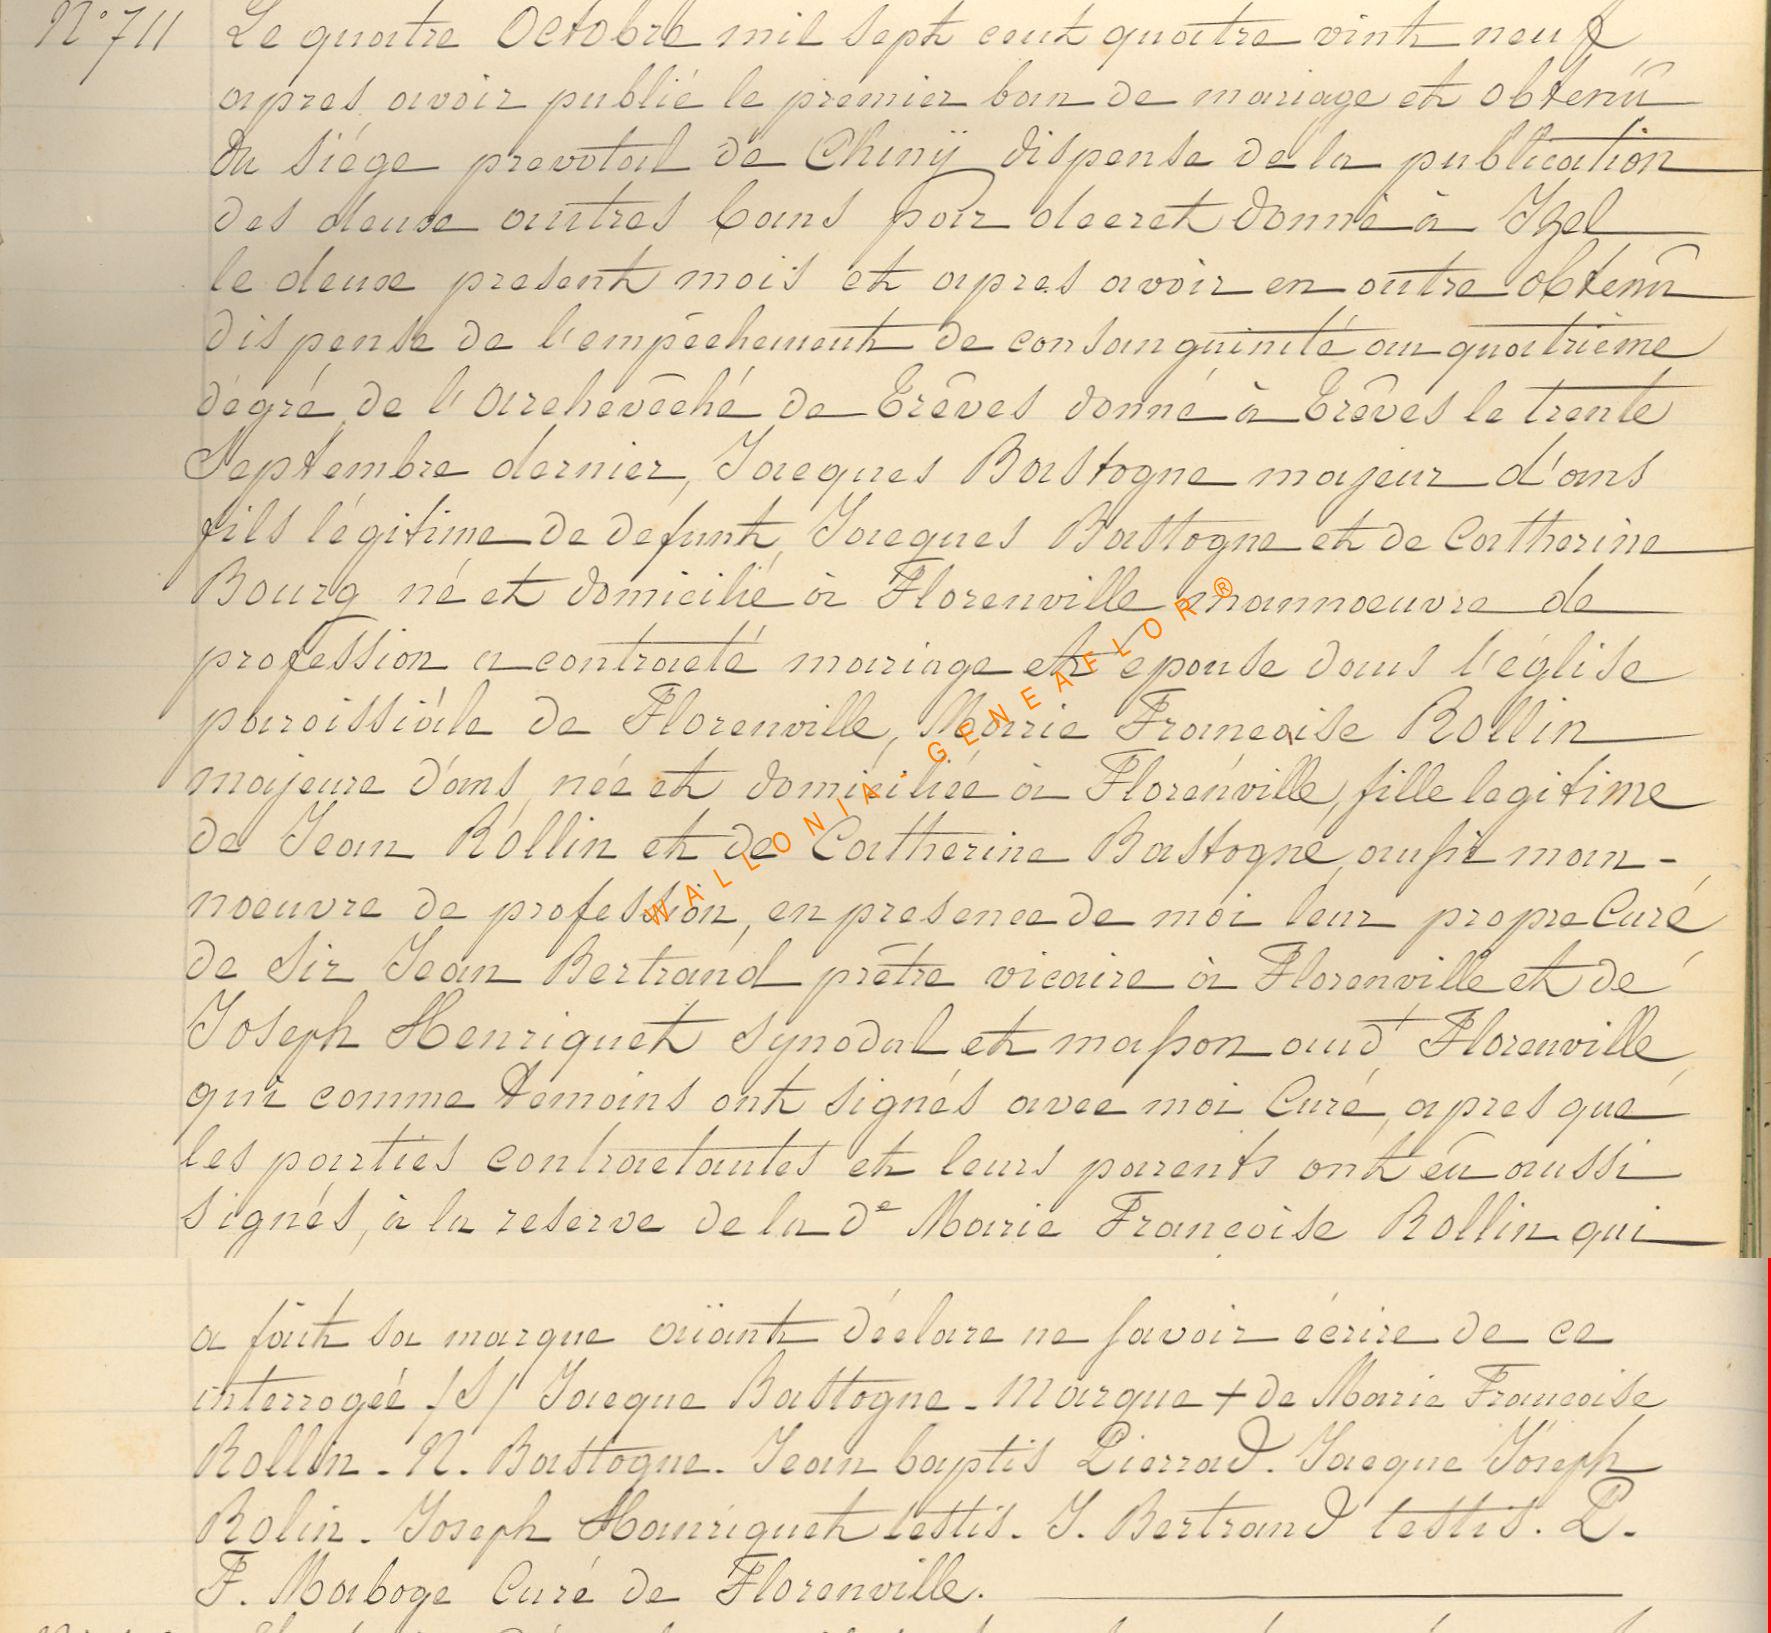 N° 711 Le quatre Octobre mil sept cent quatre vint neuf
apres avoir publié le premier ban de mariage et obtenû
du siége prevotal de Chinÿ dispense de la publication
des deux autres bans par decret donné à Izel
le deux present mois et apres avoir en outre obtenû
dispense de l'empêchement de consanguinité au quatriême
dégré de l'Archevêché de Trêves donné à Trêves le trente
Septembre dernier, Jacques Bastogne majeur d'ans
fils légitime de defunt Jacques Bastogne et de Catherine
Bourg né et domicilié à Florenville mannoeuvre de
profession a contracté mariage et epouse dans l'église
paroissiale de Florenville, Marie Francoise Rollin
majeure d'ans, née et domiciliée à Florenville, fille legitime
de Jean Rollin et de Catherine Bastogne, aussi man-
noeuvre de profession, en presence de moi leur propre Curé
de Sir Jean Bertrand prêtre vicaire à Florenville et de
Joseph Henriquet synodal et masson aud^t Florenville
qui comme témoins ont signés avec moi Curé, apres que
les parties contractantes et leurs parents ont éû aussi
signés, à la reserve de la d^e Marie Françoise Rollin qui
a fait sa marque aïant déclare ne savoir écrire de ce
interrogée /S/ Jacque Bastogne - Marque + de Marie Francoise
Rollin - N. Bastogne - Jean baptis Pierrad - Jacque Joseph
Rolin - Joseph Hanriquet testis - J. Bertrand testis. P.
F. Maboge Curé de Florenville.
WALLONIA - GENEAFLOR ®